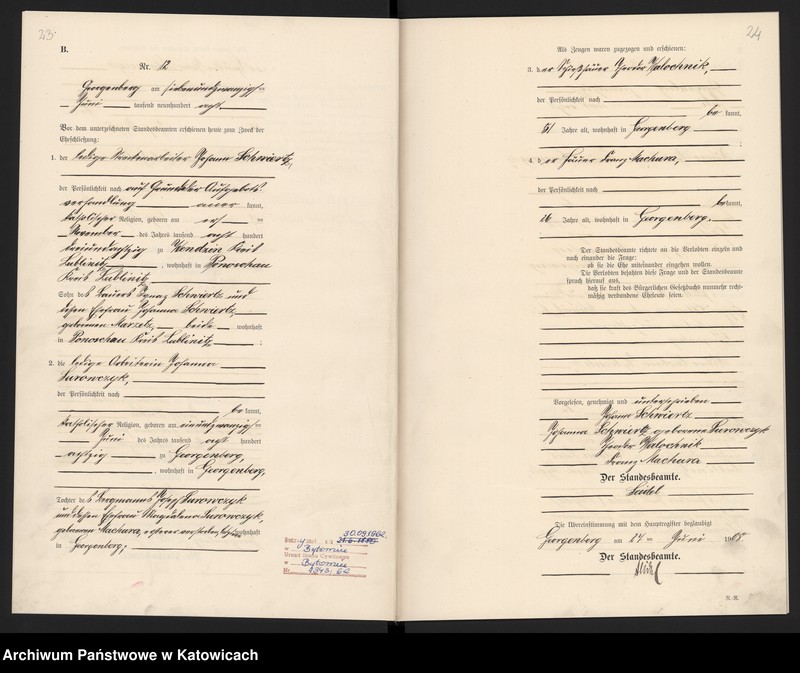 23.
B.
Nr. 12
Georgenberg am siebenundzwanzigsten
Juni tausend neunhundert acht
Vor dem unterzeichneten Standesbeamten erschienen heute zum Zweck der
Eheschließung:
1. der ledige Johann Schwiertz,
der Persönlichkeit nach auf Grund der Aufgebots-
verhandlung aner kannt,
katholischer Religion, geboren am ersten
November des Jahres tausend acht hundert
dreiundachtzig zu Kreis
Lublinitz, wohnhaft in Ponoschau
Kreis Lublinitz
Sohn des Bauers Ignaz Schwiertz und
dessen Ehefrau Johanna Schwiertz
geborenen beide wohnhaft
in Ponoschau Kreis Lublinitz ;
2. die ledige Arbeiterin Johanna
Surowczyk,
der Persönlichkeit nach
be kannt,
katholischer Religion, geboren am
Juni des Jahres tausend acht hundert
achtzig zu Georgenberg,
, wohnhaft in Georgenberg,
Tochter des Bergmanns Josef Surowczyk
und dessen Ehefrau Magdalena Surowczyk,
geborenen Machura, wohnhaft
in Georgenberg.
30.09.1962
w Bytomiu
Urząd Stanu Cywilnego
w Bytomiu
Nr.
24
Als Zeugen waren zugezogen und erschienen:
3. der Theodor Walochnik,
der Persönlichkeit nach
be kannt,
Jahre alt, wohnhaft in Georgenberg
4. der Häuer Franz Machura,
der Persönlichkeit nach
be kannt,
26 Jahre alt, wohnhaft in Georgenberg.
Der Standesbeamte richtete an die Verlobten einzeln und
nach einander die Frage:
ob sie die Ehe miteinander eingehen wollen.
Die Verlobten bejahten diese Frage und der Standesbeamte
sprach hierauf aus,
daß sie kraft des Bürgerlichen Gesetzbuchs nunmehr recht-
mäßig verbundene Eheleute seien.
Vorgelesen, genehmigt und unterschrieben
Johann Schwiertz
Johanna Schwiertz geborene Surowczyk
Theodor Walochnik
Franz Machura
Der Standesbeamte.
Seidel
Die Übereinstimmung mit dem Hauptregister beglaubigt
Georgenberg am 27 ten Juni 1908.
Der Standesbeamte.
Seidel
N.-R.
Archiwum Państwowe w Katowicach